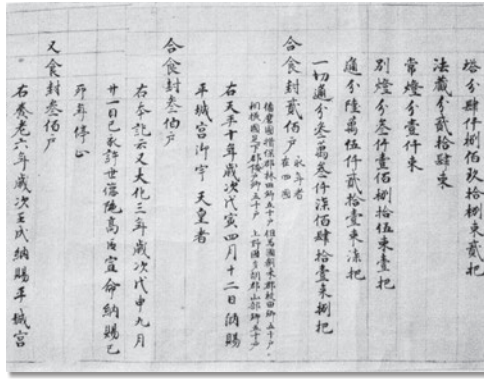 塔分肆仟捌佰玖拾捌束貳把
法蔵分貳拾肆束
常燈分壹仟束
別燈分叄仟壹佰捌拾伍束壹把
通分陸萬伍仟貳拾壹束漆把
一切通分叄萬叄仟漆佰肆拾壹束捌把
合食封貳佰戸 永年者 在四國
播磨國揖保郡林田郷五十戸 但馬國朝来郡枚田郷五十戸
相模國足下郡倭戸郷五十戸 上野國多胡郡山部郷五十戸
右天平十年歳次戊寅四月十二日納賜
平城宮御宇 天皇者
合食封叄佰戸
右本記云又大化三年歳次戊申九月
廿一日己亥許世徳陀高臣宣命納賜己
卯年停止
又食封叄佰戸
右養老六年歳次壬戌納賜平城宮